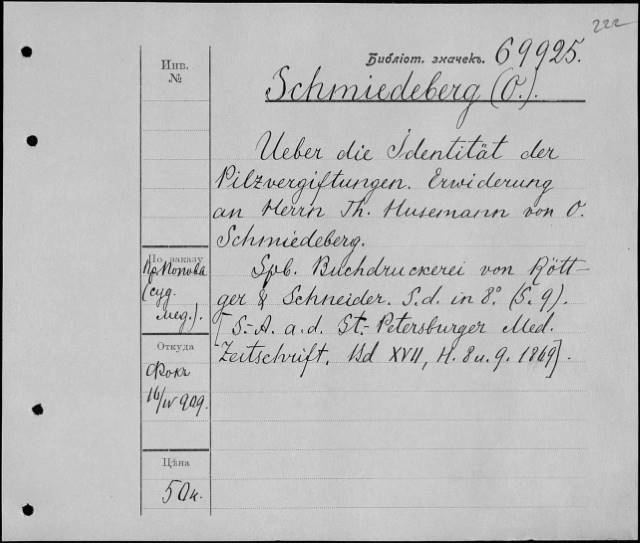 222
Инв.
№
Библіот. значекъ. 69925.
Schmiedeberg (O.).
Ueber die Identität der
Pilzvergiftungen. Erwiderung
an Herrn Th. Husemann von O.
Schmiedeberg.
Spb. Buchdruckerei von Rött-
ger & Schneider. S.d. in 8° (S. 9).
[S.-A. a.d. St.-Petersburger Med.
Zeitschrift, Bd XVII, H. 8 u. 9. 1869].
По заказу
Пр. Попова
(суд.
мед.).
Откуда
Фокъ
16/IV 909.
Цѣна
50 к.